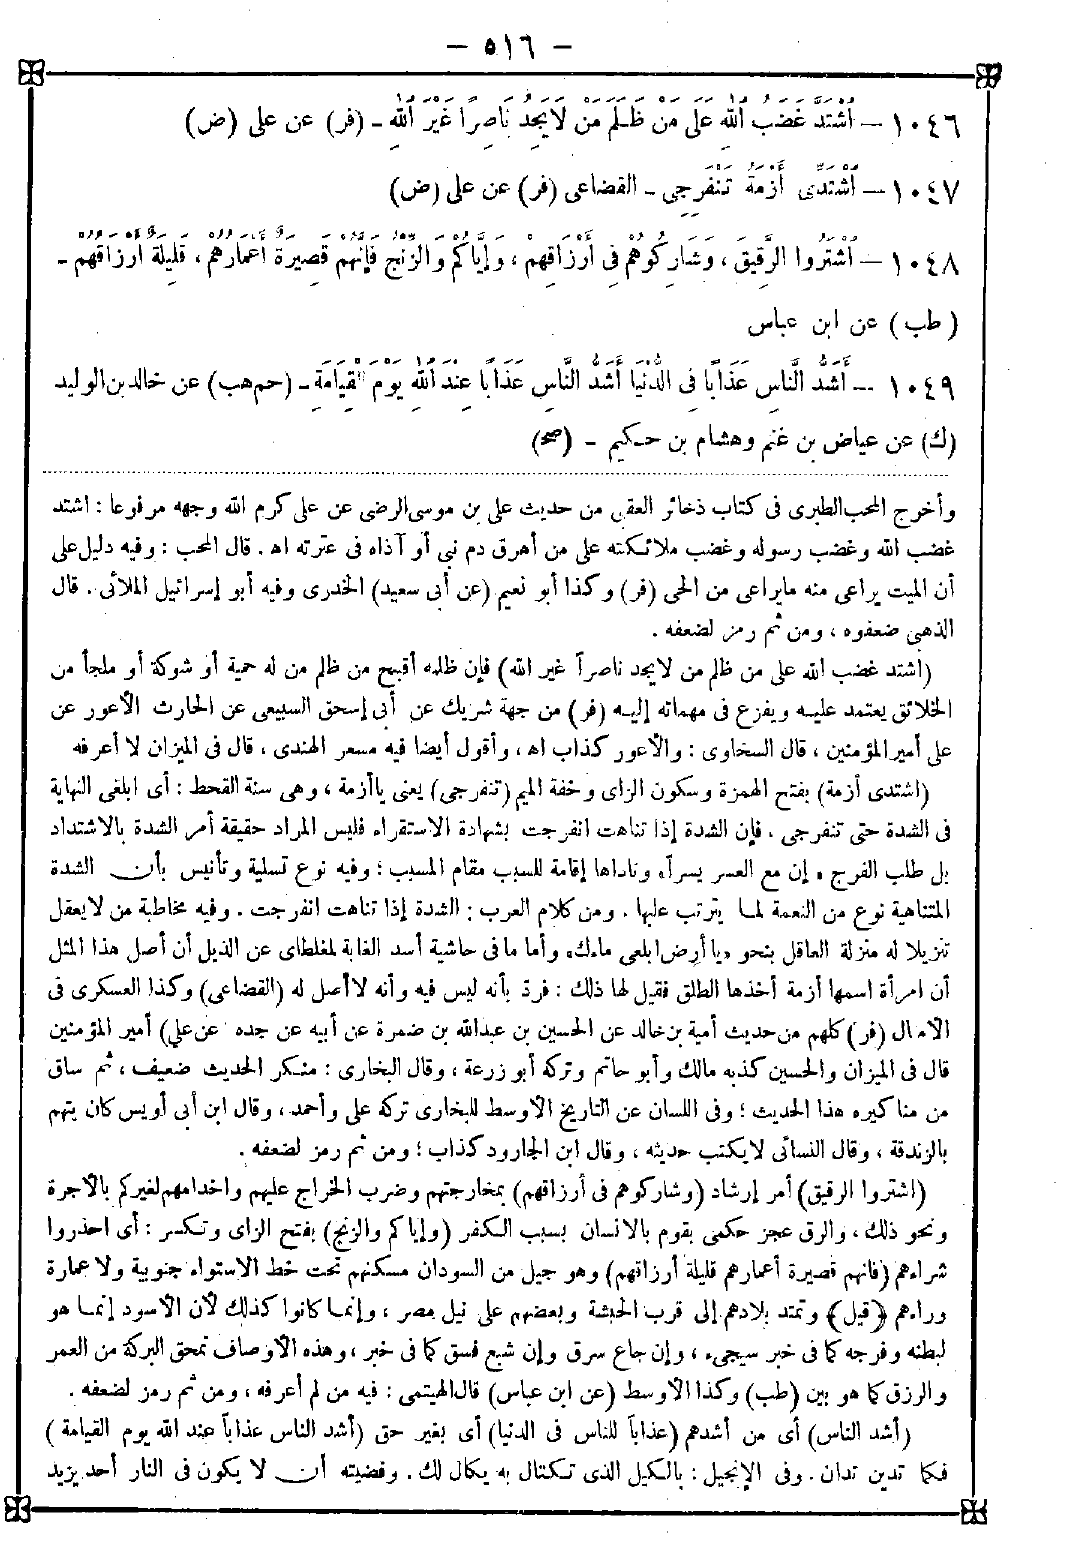 — ٥١٦ —
١٠٤٦ — اُشْتَدَّ غَضَبُ اُللهِ عَلَى مَنْ ظَلَمَ مَنْ لَايَجِدُ نَاصِرًا غَيْرَ اُللهِ - (فر) عن على (ض)
١٠٤٧ — اُشْتَدِّى أَزْمَةُ تَنْفَرِجِى - القضاعى (فر) عن على (ض)
١٠٤٨ — اُشْتَرُوا الرَّقِيقَ ، وَشَارِكُوهُمْ فِى أَرْزَاقِهِمْ ، وَإِيَّاكُمْ وَالزِّنْجَ فَإِنَّهُمْ قَصِيرَةٌ أَعْمَارُهُمْ ، قَلِيلَةٌ أَرْزَاقُهُمْ -
(طب) عن ابن عباس
١٠٤٩ — أَشَدُّ النَّاسِ عَذَابًا فِى الدُّنْيَا أَشَدُّ النَّاسِ عَذَابًا عِنْدَ اُللهِ يَوْمَ الْقِيَامَةِ - (حم هب) عن خالد بن الوليد
(ك) عن عياض بن غنم وهشام بن حكيم - (صح)
وأخرج المحب الطبرى فى كتاب ذخائر العقبى من حديث على بن موسى الرضى عن على كرم الله وجهه مرفوعا : اشتد
غضب الله وغضب رسوله وغضب ملائكته على من أهرق دم نبى أو آذاه فى عترته اه . قال المحب : وفيه دليل على
أن الميت يراعى منه مايراعى من الحى (فر) وكذا أبو نعيم (عن أبى سعيد) الخدرى وفيه أبو إسرائيل الملائى . قال
الذهبى ضعفوه ، ومن ثم رمز لضعفه .
(اشتد غضب الله على من ظلم من لايجد ناصراً غير الله) فإن ظلمه أقبح من ظلم من له حمية أو شوكة أو ملجأ من
الخلائق يعتمد عليه ويفزع فى مهماته إليه (فر) من جهة شريك عن أبى إسحق السبيعى عن الحارث الأعور عن
على أمير المؤمنين ، قال السخاوى : والأعور كذاب اه ، وأقول أيضا فيه مسعر الهندى ، قال فى الميزان لا أعرفه
(اشتدى أزمة) بفتح الهمزة وسكون الزاى وخفة الميم (تنفرجى) يعنى ياأزمة ، وهى سنة القحط : أى ابلغى النهاية
فى الشدة حتى تنفرجى ، فإن الشدة إذا تناهت انفرجت بشهادة الاستقراء فليس المراد حقيقة أمر الشدة بالاشتداد
بل طلب الفرج « إن مع العسر يسراً» وناداها إقامة للسبب مقام المسبب ؛ وفيه نوع تسلية وتأنيس بأن الشدة
المتناهية نوع من النعمة لما يترتب عليها . ومن كلام العرب : الشدة إذا تناهت انفرجت . وفيه مخاطبة من لايعقل
تنزيلا له منزلة العاقل بنحو «ياأرض ابلعى ماءك» وأما ما فى حاشية أسد الغابة لمغلطاى عن الذيل أن أصل هذا المثل
أن امرأة اسمها أزمة أخذها الطلق فقيل لها ذلك : فرد بأنه ليس فيه وأنه لاأصل له (القضاعى) وكذا العسكرى فى
الأمثال (فر) كلهم من حديث أمية بن خالد عن الحسين بن عبدالله بن ضمرة عن أبيه عن جده (عن على) أمير المؤمنين
قال فى الميزان والحسين كذبه مالك وأبو حاتم وتركه أبو زرعة ، وقال البخارى : منكر الحديث ضعيف ، ثم ساق
من مناكيره هذا الحديث ؛ وفى اللسان عن التاريخ الأوسط للبخارى تركه على وأحمد ، وقال ابن أبى أويس كان يتهم
بالزندقة ، وقال النسائى لايكتب حديثه ، وقال ابن الجارود كذاب ؛ ومن ثم رمز لضعفه .
(اشتروا الرقيق) أمر إرشاد (وشاركوهم فى أرزاقهم) بمخارجتهم وضرب الخراج عليهم وإخدامهم لغيركم بالأجرة
ونحو ذلك ، والرق عجز حكمى يقوم بالانسان بسبب الكفر (وإياكم والزنج) بفتح الزاى وتكسر : أى احذروا
شراءهم (فانهم قصيرة أعمارهم قليلة أرزاقهم) وهو جيل من السودان مسكنهم تحت خط الاستواء جنوبية ولا عمارة
وراءهم (قيل) وتمتد بلادهم إلى قرب الحبشة وبعضهم على نيل مصر ، وإنما كانوا كذلك لأن الأسود إنما هو
لبطنه وفرجه كما فى خبر سيجىء ، وإن جاع سرق وإن شبع فسق كما فى خبر ، وهذه الأوصاف تمحق البركة من العمر
والرزق كما هو بين (طب) وكذا الأوسط (عن ابن عباس) قال الهيتمى : فيه من لم أعرفه ، ومن ثم رمز لضعفه .
(أشد الناس) أى من أشدهم (عذاباً للناس فى الدنيا) أى بغير حق (أشد الناس عذاباً عند الله يوم القيامة)
فكما تدين تدان . وفى الإنجيل : بالكيل الذى تكتال به يكال لك . وقضيته أن لا يكون فى النار أحد يزيد